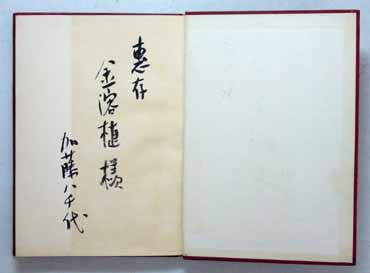 惠存
金溶植 様
加藤八千代